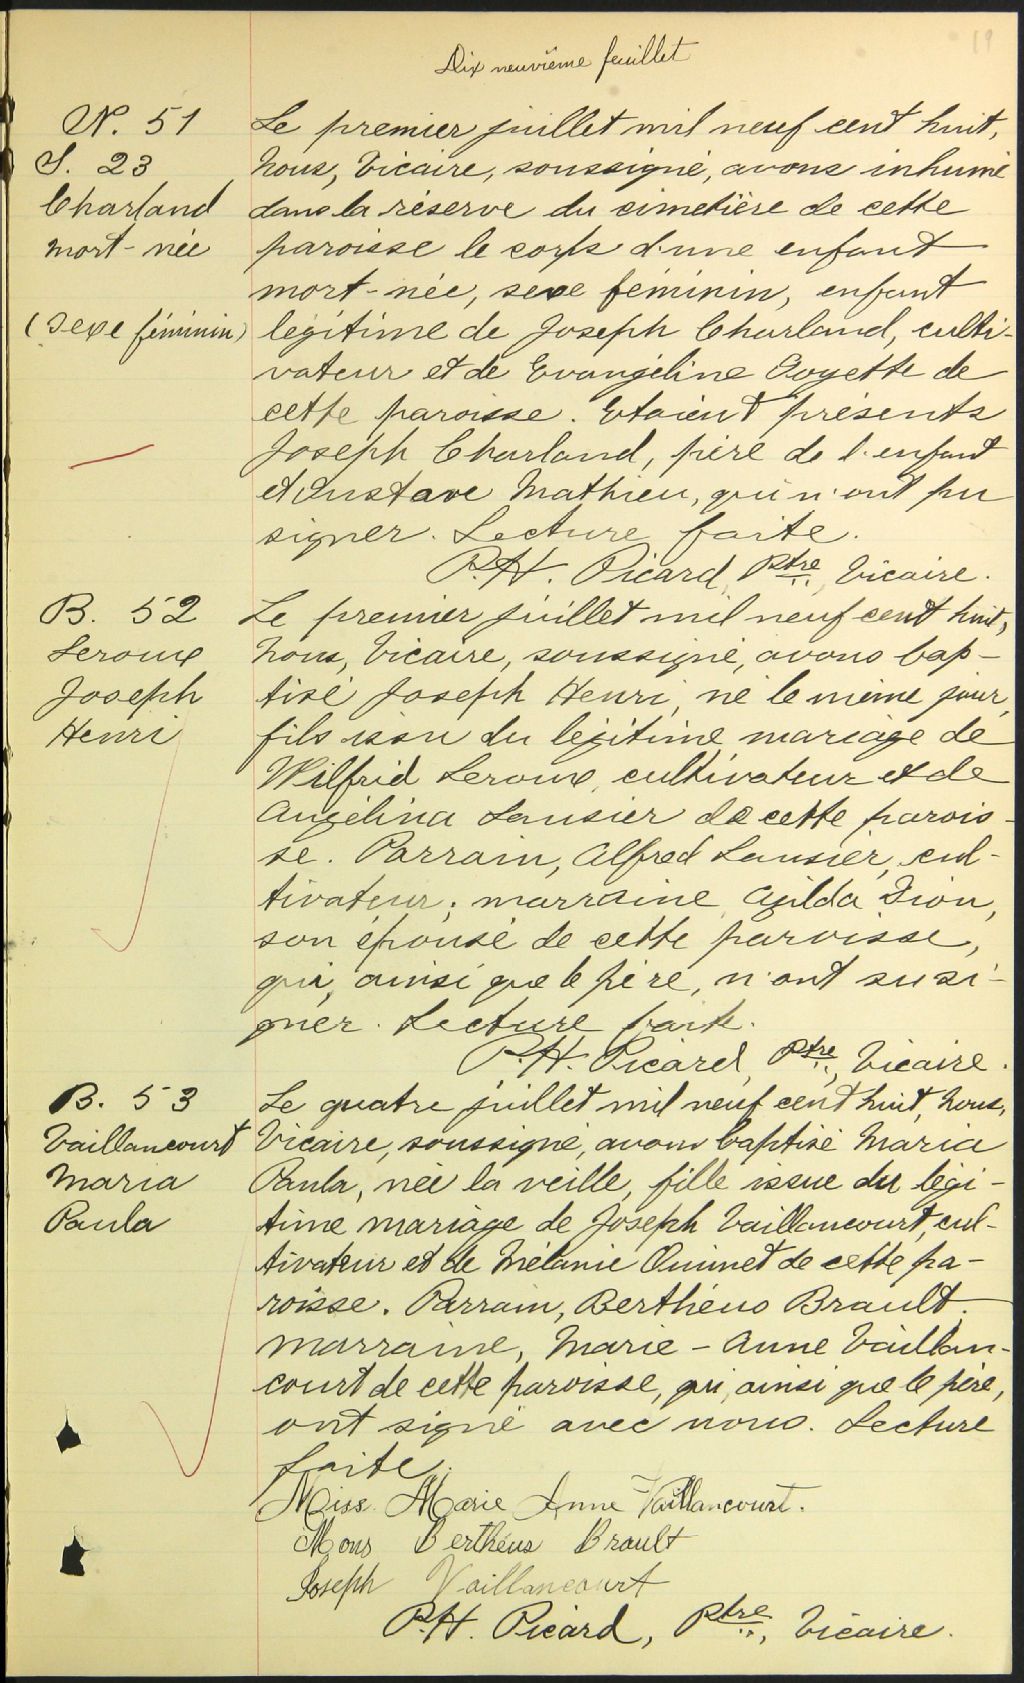 19
Dix neuvième feuillet
N. 51
S. 23
Charland
mort-née
(Sexe féminin)
Le premier juillet mil neuf cent huit,
nous, Vicaire, soussigné, avons inhumé
dans la réserve du cimetière de cette
paroisse le corps d'une enfant
mort-née, sexe féminin, enfant
légitime de Joseph Charland, culti-
vateur et de Evangéline Goyette de
cette paroisse. Etaient présents
Joseph Charland, père de l'enfant
et Gustave Mathieu, qui n'ont pu
signer. Lecture faite.
P.H. Picard, Ptre, Vicaire.
B. 52
Leroux
Joseph
Henri
Le premier juillet mil neuf cent huit,
nous, Vicaire, soussigné, avons bap-
tisé Joseph Henri, né le même jour,
fils issu du légitime mariage de
Wilfrid Leroux, cultivateur et de
Angélina Lausier de cette parois-
se. Parrain, Alfred Lausier, cul-
tivateur; marraine, Dion,
son épouse de cette paroisse,
qui, ainsi que le père, n'ont su si-
gner. Lecture faite.
P.H. Picard, Ptre, Vicaire.
B. 53
Vaillancourt
Maria
Paula
Le quatre juillet mil neuf cent huit, nous,
Vicaire, soussigné, avons baptisé Maria
Paula, née la veille, fille issue du légi-
time mariage de Joseph Vaillancourt, cul-
tivateur et de Mélanie Ouimet de cette pa-
roisse. Parrain, Berthéus Brault.
marraine, Marie-Anne Vaillan-
court de cette paroisse, qui, ainsi que le père,
ont signé avec nous. Lecture
faite.
Miss. Marie Anne Vaillancourt.
Mons Berthéus Brault
Joseph Vaillancourt
P.H. Picard, Ptre, Vicaire.